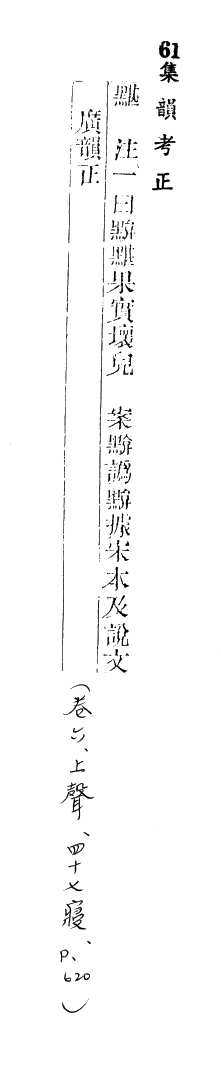 61集韻考正
黮 注一曰黮果實壞皃 案譌據宋本及說文
廣韻正
(卷六、上聲、四十七寑、p、620)